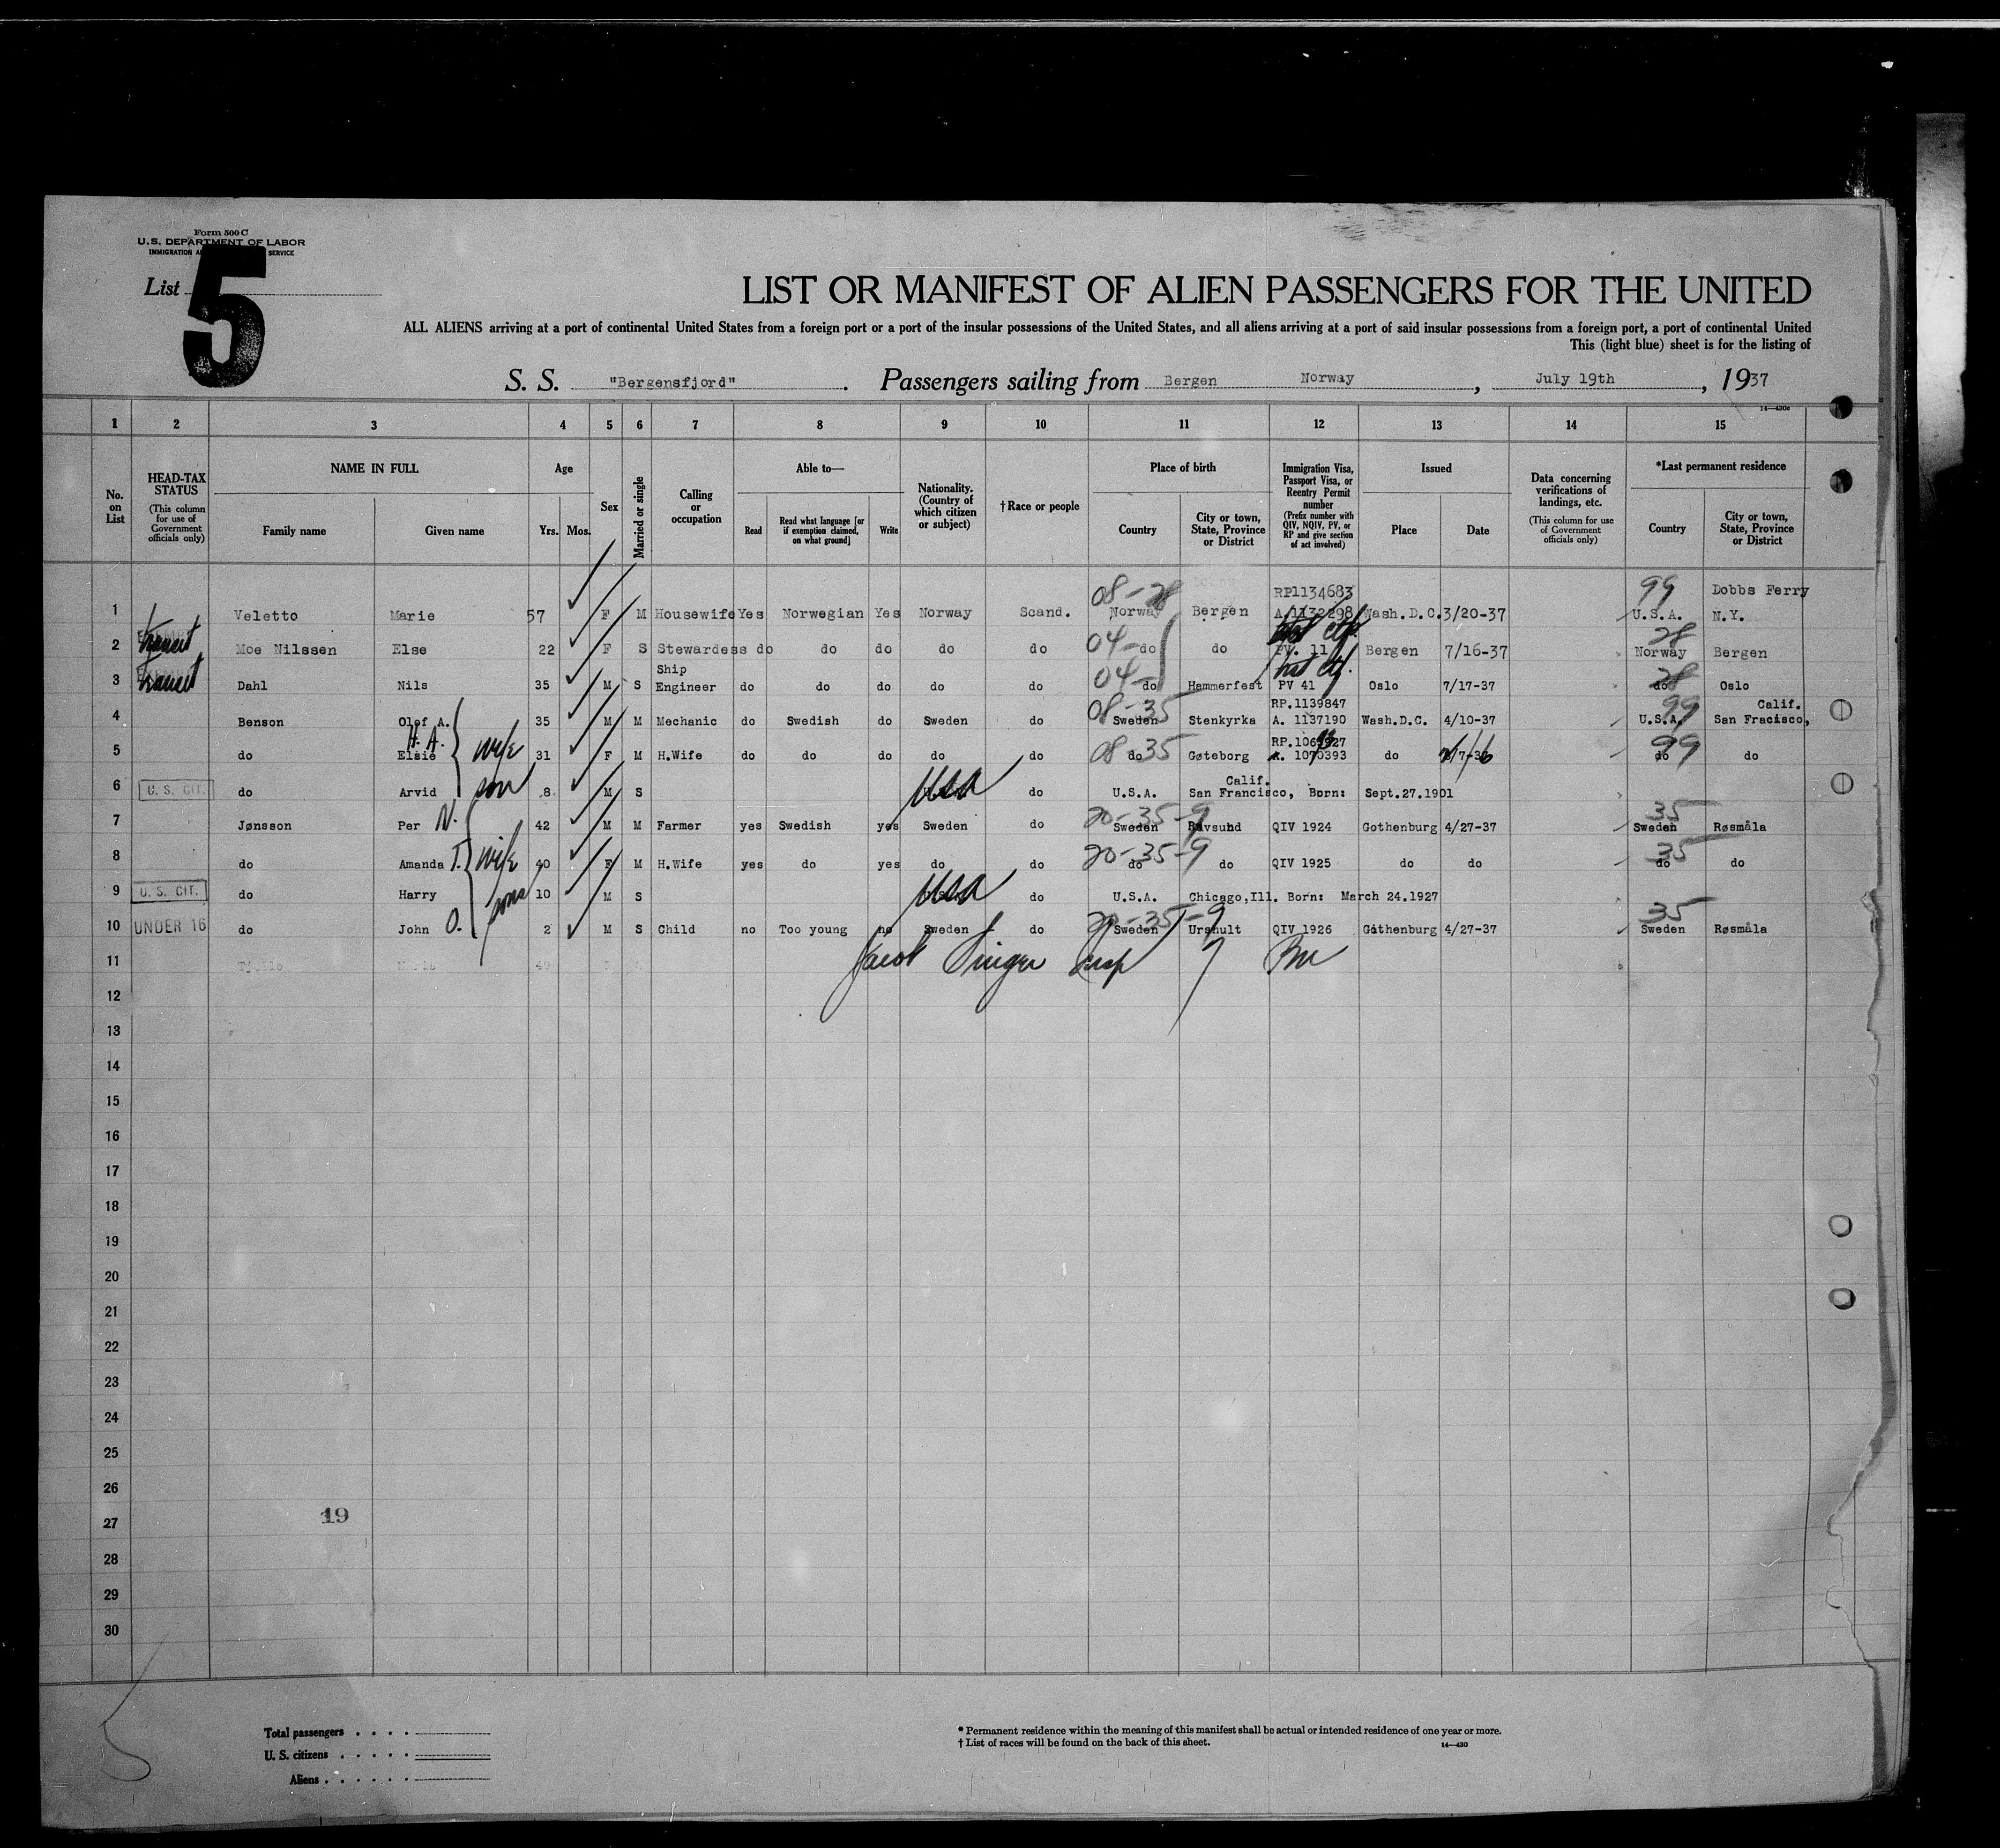 Form 500 C
U.S. DEPARTMENT OF LABOR
IMMIGRATION SERVICE
List 5
LIST OR MANIFEST OF ALIEN PASSENGERS FOR THE UNITED
ALL ALIENS arriving at a port of continental United States from a foreign port or a port of the insular possessions of the United States, and all aliens arriving at a port of said insular possessions from a foreign port, a port of continental United
This (light blue) sheet is for the listing of
S. S. "Bergensfjord". Passengers sailing from Bergen Norway, July 19th, 1937
14—430c
1 2 3 4 5 6 7 8 9 10 11 12 13 14 15
No. on List
HEAD-TAX STATUS (This column for use of Government officials only)
NAME IN FULL
Family name Given name
Age
Yrs. Mos.
Sex
Married or single
Calling or occupation
Able to—
Read Read what language [or if exemption claimed, on what ground] Write
Nationality. (Country of which citizen or subject)
†Race or people
Place of birth
Country City or town, State, Province or District
Immigration Visa, Passport Visa, or Reentry Permit number (Prefix number with QIV, NQIV, PV, or RP and give section of act involved)
Issued
Place Date
Data concerning verifications of landings, etc. (This column for use of Government officials only)
*Last permanent residence
Country City or town, State, Province or District
08-28 RP1134683 99 Dobbs Ferry
1 Veletto Marie 57 F M Housewife Yes Norwegian Yes Norway Scand. Norway Bergen A.1132298 Wash.D.C. 3/20-37 U.S.A. N.Y.
2 Transit Moe Nilssen Else 22 F S Stewardess do do do do do 04- do do PV. 11 Bergen 7/16-37 28 Norway Bergen
3 Transit Dahl Nils 35 M S Ship Engineer do do do do do 04- do Hammerfest PV 41 Oslo 7/17-37 28 do Oslo
4 Benson Olof A. 35 M M Mechanic do Swedish do Sweden do 08-35 Sweden Stenkyrka RP.1139847 A. 1137190 Wash.D.C. 4/10-37 99 U.S.A. Calif. San Fracisco,
5 do H.A. Elsie wife 31 F M H.Wife do do do do do 08-35 do Gøteborg A. 1070393 do 99 do do
6 U. S. CIT. do Arvid son 8 M S USA do U.S.A. Calif. San Francisco, Born: Sept.27.1901
7 Jønsson Per N. 42 M M Farmer yes Swedish yes Sweden do 20-35-9 Sweden Ravsund QIV 1924 Gothenburg 4/27-37 35 Sweden Røsmåla
8 do Amanda T. wife 40 F M H.Wife yes do yes do do 20-35-9 do do QIV 1925 do do 35 do do
9 U. S. CIT. do Harry sons 10 M S USA do U.S.A. Chicago,Ill. Born: March 24.1927
10 UNDER 16 do John O. 2 M S Child no Too young no Sweden do 20-35-9 Sweden Urshult QIV 1926 Gothenburg 4/27-37 35 Sweden Røsmåla
11
Jacob Singer Insp
12
13
14
15
16
17
18
19
20
21
22
23
24
25
26
19
27
28
29
30
Total passengers . . . .
U. S. citizens . . . . .
Aliens . . . . . .
* Permanent residence within the meaning of this manifest shall be actual or intended residence of one year or more.
† List of races will be found on the back of this sheet.
14—430